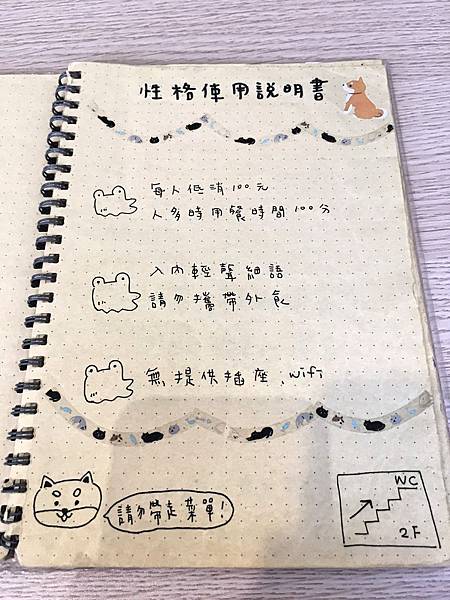 性格使用說明書
每人低消100元
人多時用餐時間100分
入內輕聲細語
請勿攜帶外食
無提供插座、wifi
請勿帶走菜單!
WC
2F